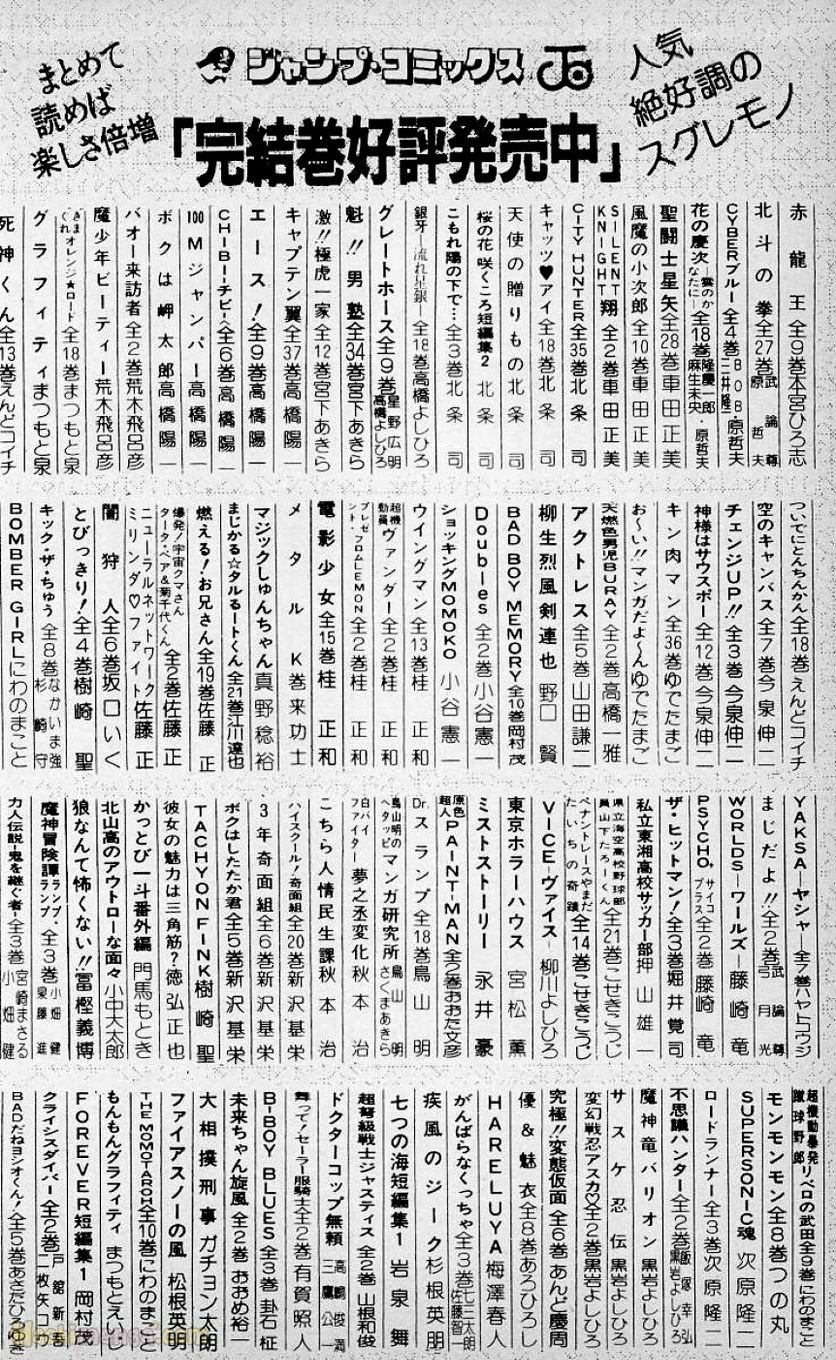 まとめて
読めば
楽しさ倍増
ジャンプ・コミックス
人気
絶好調の
スグレモノ
「完結巻好評発売中」
赤龍王 全9巻 本宮ひろ志
北斗の拳 全27巻 武論尊 原哲夫
CYBERブルー 全4巻 BOB・原哲夫 三井隆一
花の慶次―雲のかなたに― 全18巻 隆慶一郎・原哲夫 麻生未央
聖闘士星矢 全28巻 車田正美
風魔の小次郎 全10巻 車田正美
SILENT KNIGHT翔 全2巻 車田正美
CITY HUNTER 全35巻 北条司
キャッツ♥アイ 全18巻 北条司
天使の贈りもの 北条司
桜の花咲くころ 短編集2 北条司
こもれ陽の下で… 全3巻 北条司
銀牙―流れ星 銀― 全18巻 高橋よしひろ
グレートホース 全9巻 星野広明 高橋よしひろ
魁!!男塾 全34巻 宮下あきら
激!!極虎一家 全12巻 宮下あきら
キャプテン翼 全37巻 高橋陽一
エース! 全9巻 高橋陽一
CHIBI―チビ― 全6巻 高橋陽一
100Mジャンパー 高橋陽一
ボクは岬太郎 高橋陽一
バオー来訪者 全2巻 荒木飛呂彦
魔少年ビーティー 荒木飛呂彦
きまぐれオレンジ★ロード 全18巻 まつもと泉
グラフィティ まつもと泉
死神くん 全13巻 えんどコイチ
ついでにとんちんかん 全18巻 えんどコイチ
空のキャンバス 全7巻 今泉伸二
チェンジUP!! 全3巻 今泉伸二
神様はサウスポー 全12巻 今泉伸二
キン肉マン 全36巻 ゆでたまご
お～い!!マンガだよ～ん ゆでたまご
天燃色男児BURAY 全2巻 高橋一雅
アクトレス 全5巻 山田謙二
柳生烈風剣連也 野口賢
BAD BOY MEMORY 全10巻 岡村茂
Doubles 全2巻 小谷憲一
ショッキングMOMOKO 小谷憲一
ウイングマン 全13巻 桂正和
超機動員ヴァンダー 全2巻 桂正和
プレゼント・フロムLEMON 全2巻 桂正和
電影少女 全15巻 桂正和
メタルK 巻来功士
マジックしゅんちゃん 真野稔裕
まじかる☆タルるートくん 全21巻 江川達也
燃える!お兄さん 全19巻 佐藤正
爆発!宇宙クマさん タータ・ベア&菊千代くん 全2巻 佐藤正
ニューラルネットワーク ミリンダ♡ファイト 佐藤正
闇狩人 全6巻 坂口いく
とびっきり! 全4巻 樹崎聖
キック・ザ・ちゅう 全8巻 なかいま強 杉崎守
BOMBER GIRL にわのまこと
YAKSA―ヤシャ― 全7巻 ハヤトコウジ
まじだよ!! 全2巻 武論尊 弓月光
WORLDS―ワールズ― 藤崎竜
PSYCHO+ サイコプラス 全2巻 藤崎竜
ザ・ヒットマン! 全3巻 堀井覚司
私立東湘高校サッカー部 押山雄一
県立海空高校野球部員山下たろーくん 全21巻 こせきこうじ
ペナントレースやまだたいちの奇蹟 全14巻 こせきこうじ
VICE―ヴァイス― 柳川よしひろ
東京ホラーハウス 宮松薫
ミストストーリー 永井豪
原色超人PAINT-MAN 全2巻 おおた文彦
Dr.スランプ 全18巻 鳥山明
鳥山明のヘタッピマンガ研究所 鳥山明 さくまあきら
白バイファイター 夢之丞変化 秋本治
こちら人情民生課 秋本治
ハイスクール!奇面組 全20巻 新沢基栄
3年奇面組 全6巻 新沢基栄
ボクはしたたか君 全5巻 新沢基栄
TACHYON FINK 樹崎聖
彼女の魅力は三角筋? 徳弘正也
かっとび一斗番外編 門馬もとき
北山高のアウトローな面々 小中大太郎
狼なんて怖くない!! 冨樫義博
魔神冒険譚ランプ・ランプ 全3巻 小畑健 泉藤進
力人伝説―鬼を継ぐ者― 全3巻 宮崎まさる 小畑健
超機動暴発蹴球野郎 リベロの武田 全9巻 にわのまこと
モンモンモン 全8巻 つの丸
SUPERSONIC魂 次原隆二
ロードランナー 全3巻 次原隆二
不思議ハンター 全2巻 飯塚幸弘 黒岩よしひろ
魔神竜バリオン 黒岩よしひろ
サスケ忍伝 黒岩よしひろ
変幻戦忍アスカ♡ 全2巻 黒岩よしひろ
究極!!変態仮面 全6巻 あんど慶周
優&魅衣 全8巻 あろひろし
HARELUYA 梅澤春人
がんばらなくっちゃ 全3巻 七三太朗 佐藤智一
疾風のジーク 杉根英朋
七つの海 短編集1 岩泉舞
超弩級戦士ジャスティス 全2巻 山根和俊
ドクターコップ無頼 高嶋俊満 三鷹公一
舞って!セーラー服騎士 全2巻 有賀照人
B-BOY BLUES 全3巻 卦石柾
未来ちゃん旋風 全2巻 おおめ裕一
大相撲刑事 ガチョン太朗
ファイアスノーの風 松根英明
THE MOMOTAROH 全10巻 にわのまこと
もんもんグラフィティ まつもとえいじ
FOREVER 短編集1 岡村茂
クライシスダイバー 全2巻 戸舘新吾 二枚矢コウ
BADだねヨシオくん! 全5巻 あさだひろゆき